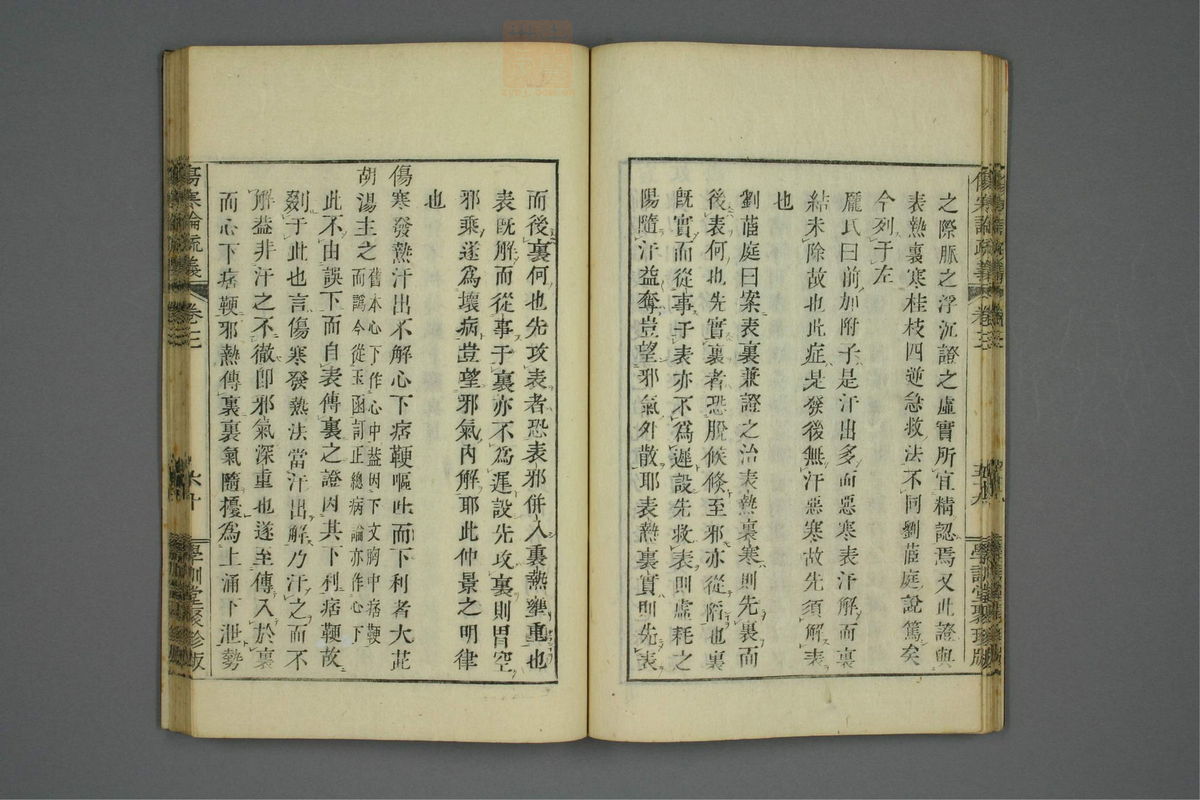 之際脈之浮沉證之虛實所宜精認焉又此證與
表熱裏寒桂枝四逆急救法不同劉茝庭說篤矣
今列于左
龐氏曰前加附子是汗出多而惡寒表汗解而裏
結未除故也此症是發後無汗惡寒故先須解表
也
劉茝庭曰案表裏兼證之治表熱裏寒則先裏而
後表何也先實裏者恐脫候倏至邪亦從陷也裏
既實而從事于表亦不爲遲設先救表則虛耗之
陽隨汗益奪豈望邪氣外散耶表熱裏實則先表
而後裏何也先攻表者恐表邪併入裏熱壅重也
表既解而從事于裏亦不爲遲設先攻裏則胃空
邪乘遂爲壞病豈望邪氣內解耶此仲景之明律
也
傷寒發熱汗出不解心下痞鞕嘔吐而下利者大茈
胡湯主之
舊本心下作心中葢因下文胸中痞鞕
而譌今從玉函訂正總病論亦作心下
此不由誤下而自表傳裏之證因其下利痞鞕故
列于此也言傷寒發熱法當汗出解乃汗之而不
解益非汗之不徹卽邪氣深重也遂至傳入於裏
而心下痞鞕邪熱傳裏裏氣隨擾爲上涌下泄勢
傷寒論疏義
卷三
五十九
學訓堂聚珍版
傷寒論疏義
卷三
六十
學訓堂聚珍版